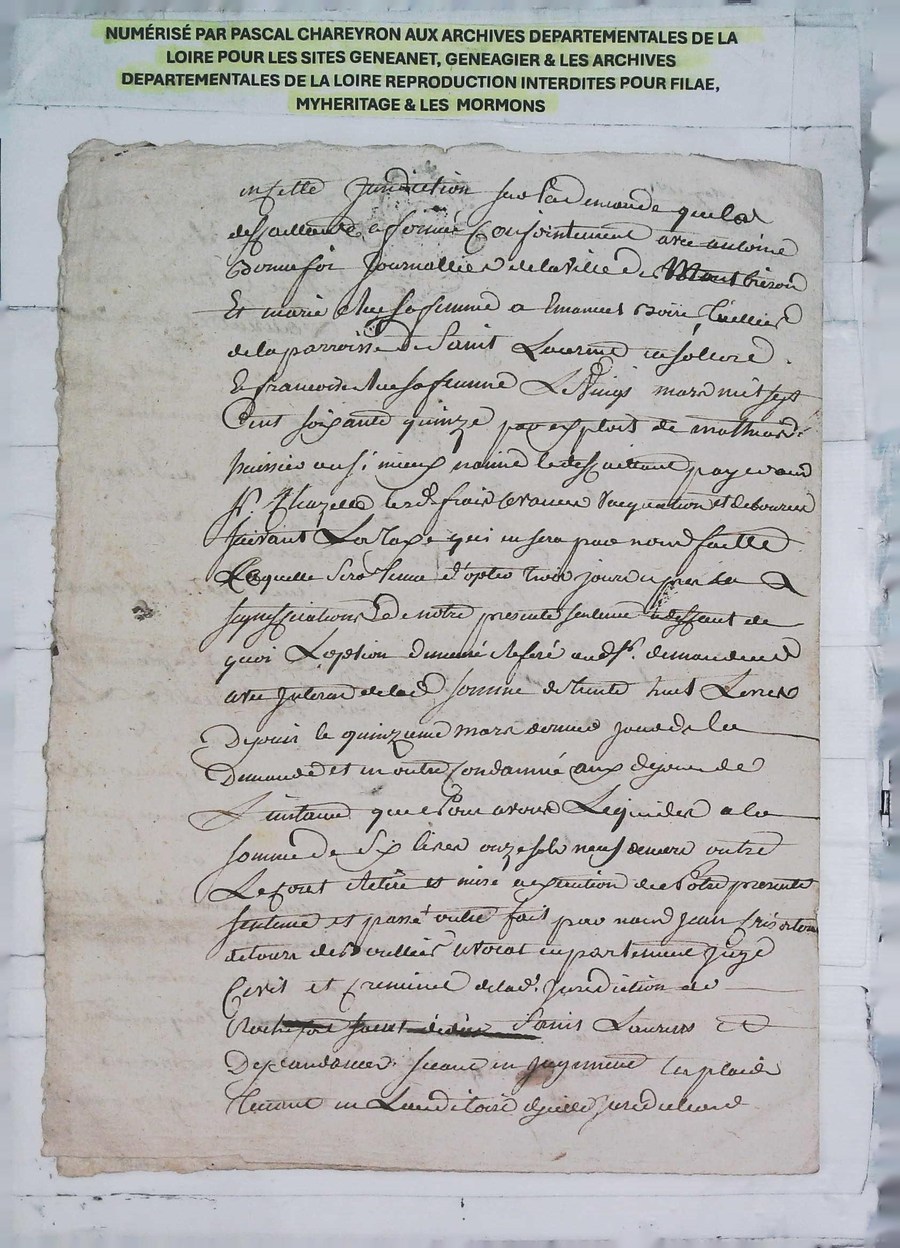 NUMÉRISÉ PAR PASCAL CHAREYRON AUX ARCHIVES DEPARTEMENTALES DE LA
LOIRE POUR LES SITES GENEANET, GENEAGIER & LES ARCHIVES
DEPARTEMENTALES DE LA LOIRE REPRODUCTION INTERDITES POUR FILAE,
MYHERITAGE & LES MORMONS
en cette Juridiction sur la demande que lad
deffaillante a formé Conjointement avec antoine
Bonnefoi Journallier de la ville de Montbrison
Et marie sa femme a Emanuel
de la parroisse de Saint Laurent
Et francoise sa femme Le Vingt mars mil sept
Cent soixante quinze par exploit de mathias
huissier si mieux n'aime le deffaillant payer aud
Sr. Chazelle lesd frais Vacquations et debourcés
suivant La Taxe qui en sera par nous faitte
Laquelle Sera tenue d'opter trois jours apres la
signiffications de notre presente sentence a deffaut de
quoi L'option demeure referé aud Sr. demandeur
avec Interets de lad somme de trente huit Livres
Depuis le quinzieme mars dernier jour de la
Demande et en outre Condamné aux depens de
L'instance que Nous avons Liquidés a la
somme de Six livres onze sols neuf deniers outre
et mise a execution de Notre presente
sentence et passé outre fait par nous Jean
avocat en parlement Juge
Civil et Criminel de lad. Juridiction de
Saint Laurent et
Dependances seant en Jugement les plaids
tenant en L'auditoire d'icelle Juridiction